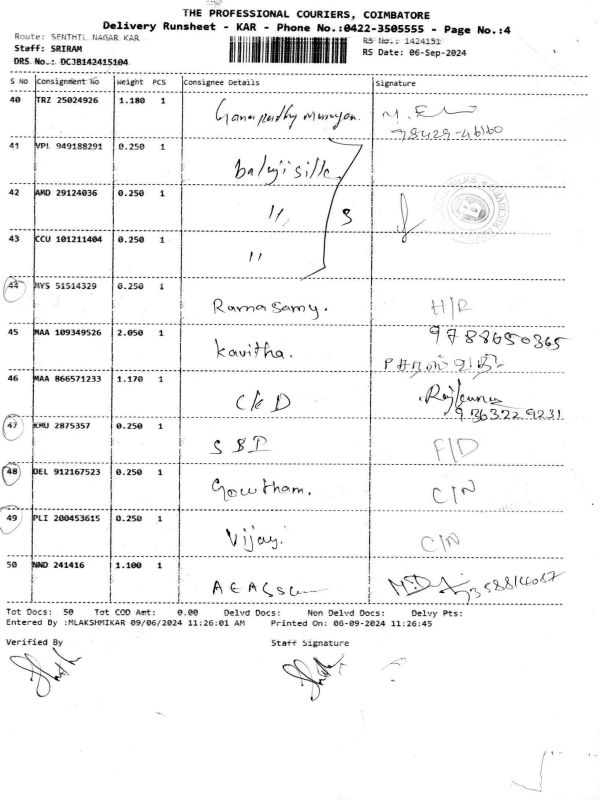 THE PROFESSIONAL COURIERS, COIMBATORE
Delivery Runsheet - KAR - Phone No.:0422-3505555 - Page No.:4
Route: SENTHIL NAGAR KAR RS No.: 1424151
Staff: SRIRAM RS Date: 06-Sep-2024
DRS No.: DCJB142415104
S NO Consignment No Weight PCS Consignee Details Signature
40 TRZ 25024926 1.180 1
41 VPL 949188291 0.250 1 balaji silk
42 AMD 29124036 0.250 1 11, 3
43 CCU 101211404 0.250 1 11
44 MYS 51514329 0.250 1 Ramasamy. H/R
45 MAA 109349526 2.050 1 Kavitha. 9788650365
46 MAA 866571233 1.170 1 CKD Rajkumar
47 KMU 2875357 0.250 1 SBI F/D
48 DEL 912167523 0.250 1 Gowtham. C/N
49 PLI 200453615 0.250 1 Vijay. C/N
50 NND 241416 1.100 1
Tot Docs: 50 Tot COD Amt: 0.00 Delvd Docs: Non Delvd Docs: Delvy Pts:
Entered By :MLAKSHMIKAR 09/06/2024 11:26:01 AM Printed On: 06-09-2024 11:26:45
Verified By Staff Signature